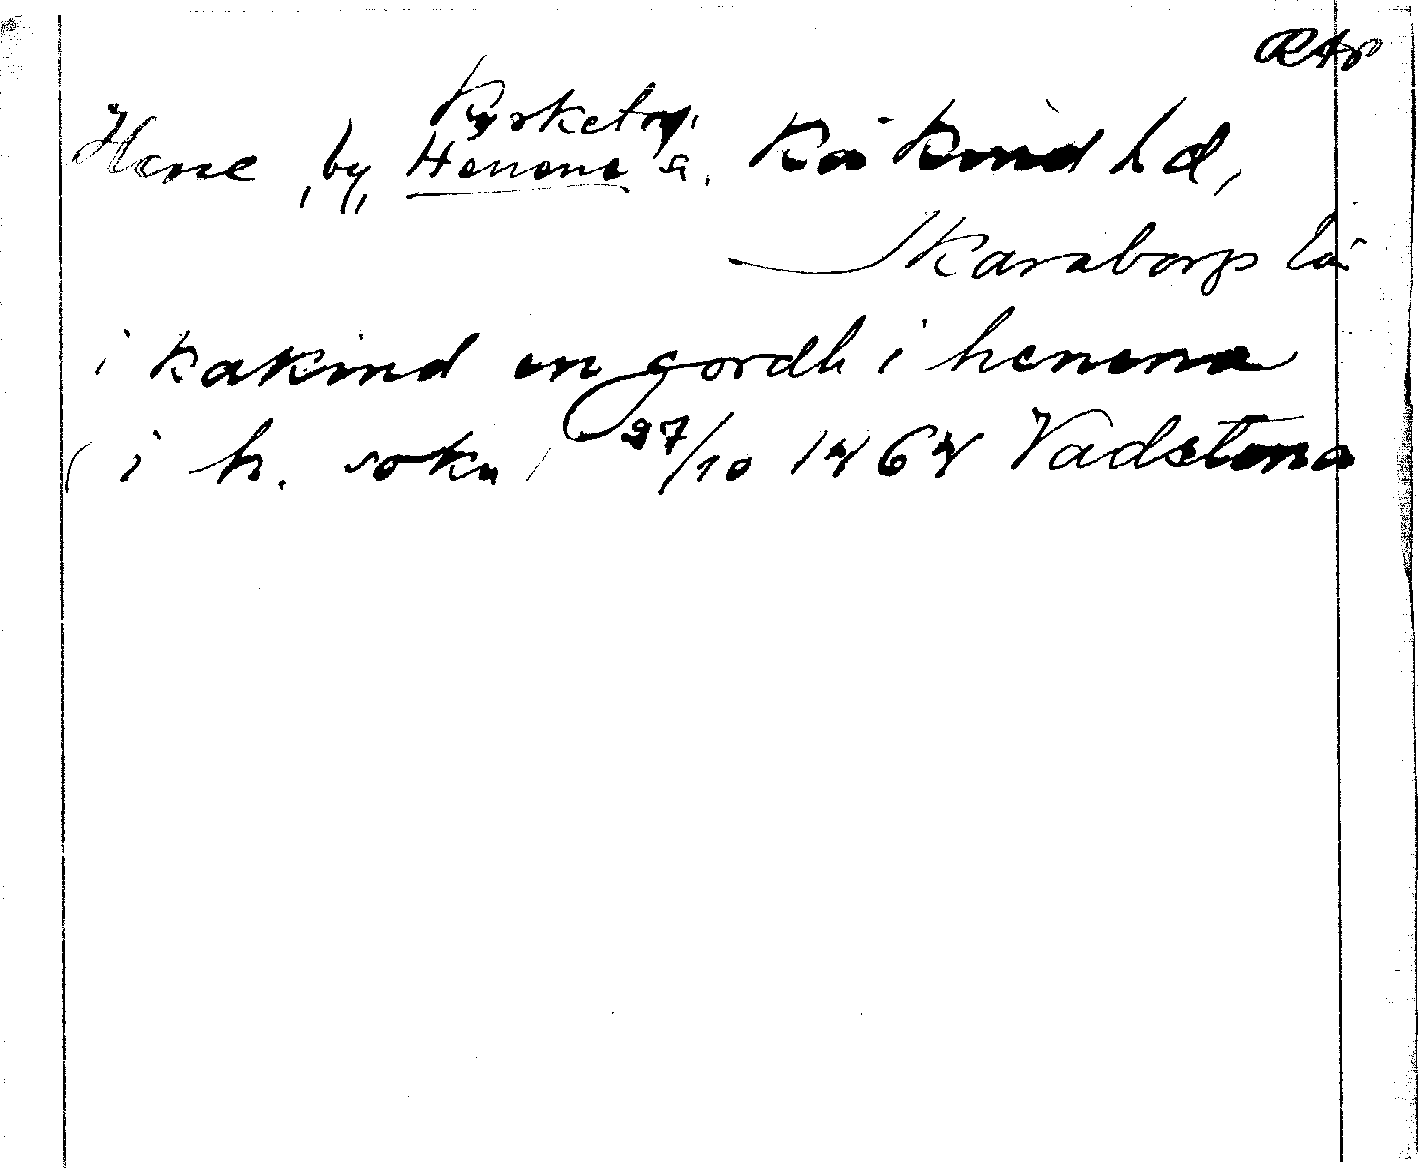 RAp
Kyrketorp
Hene, by, Henene s. Kåkind hd,
Skaraborgs län
i kakind en gordh i henena
( i h. sokn ) 27/10 1464 Vadstena